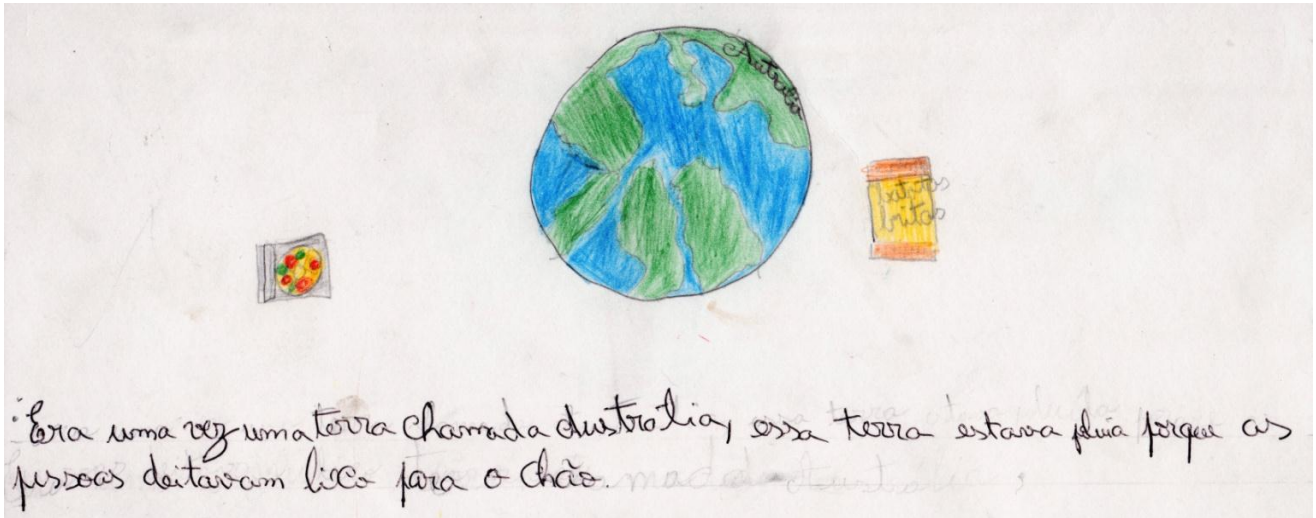 Autrolia
batatas
fritas
Era uma vez uma terra chamada Australia, essa terra estava pluia porque as
pessoas deitavam lixo para o chão.